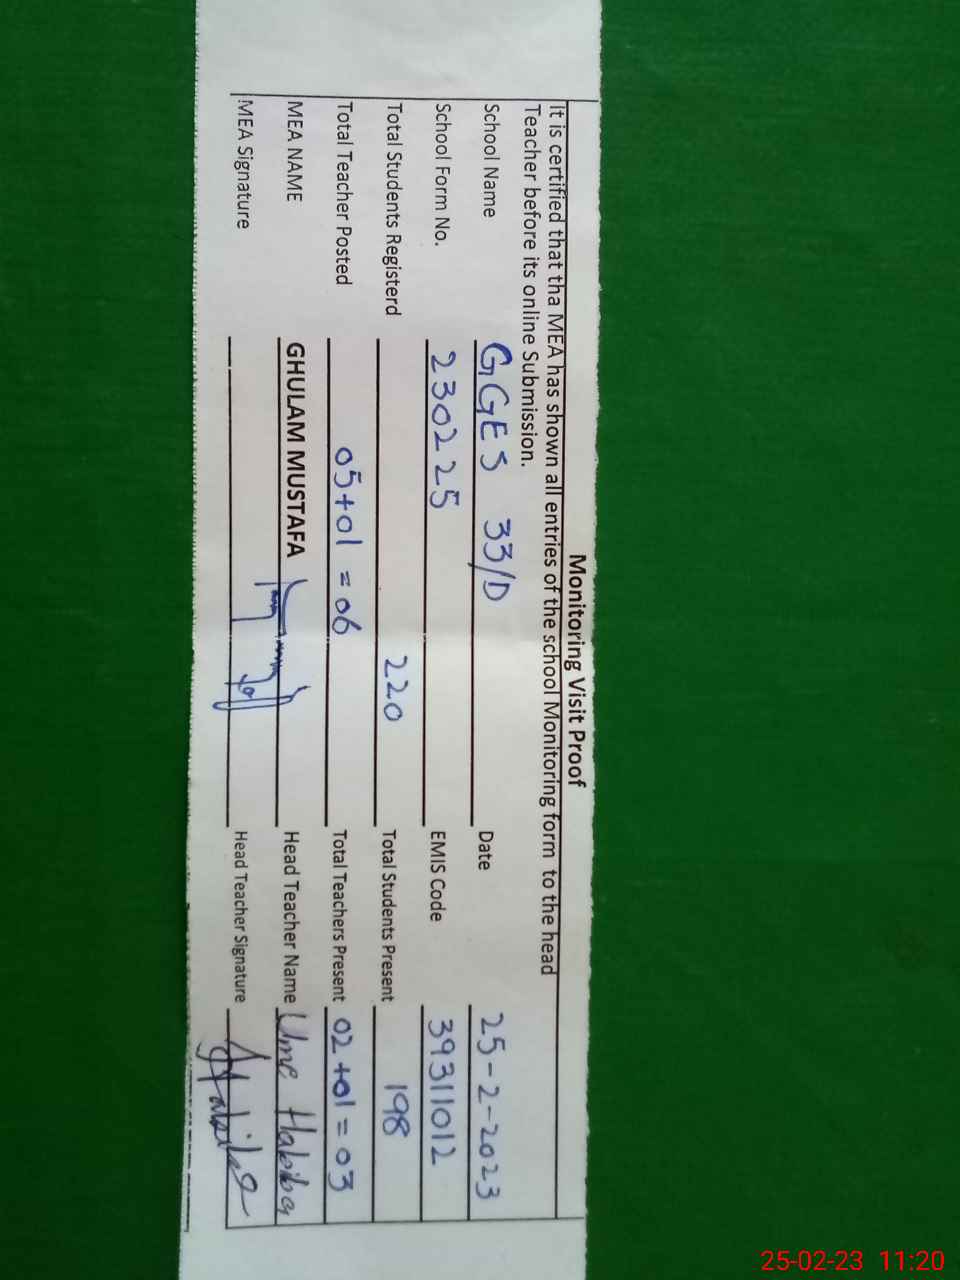 Monitoring Visit Proof
It is certified that tha MEA has shown all entries of the school Monitoring form to the head
Teacher before its online Submission.
School Name GGES 33/D Date 25-2-2023
School Form No. 230225 EMIS Code 39311012
Total Students Registerd 220 Total Students Present 198
Total Teacher Posted 05+01 = 06 Total Teachers Present 02+01 = 03
MEA NAME GHULAM MUSTAFA Head Teacher Name Ume Habiba
MEA Signature Head Teacher Signature
25-02-23 11:20